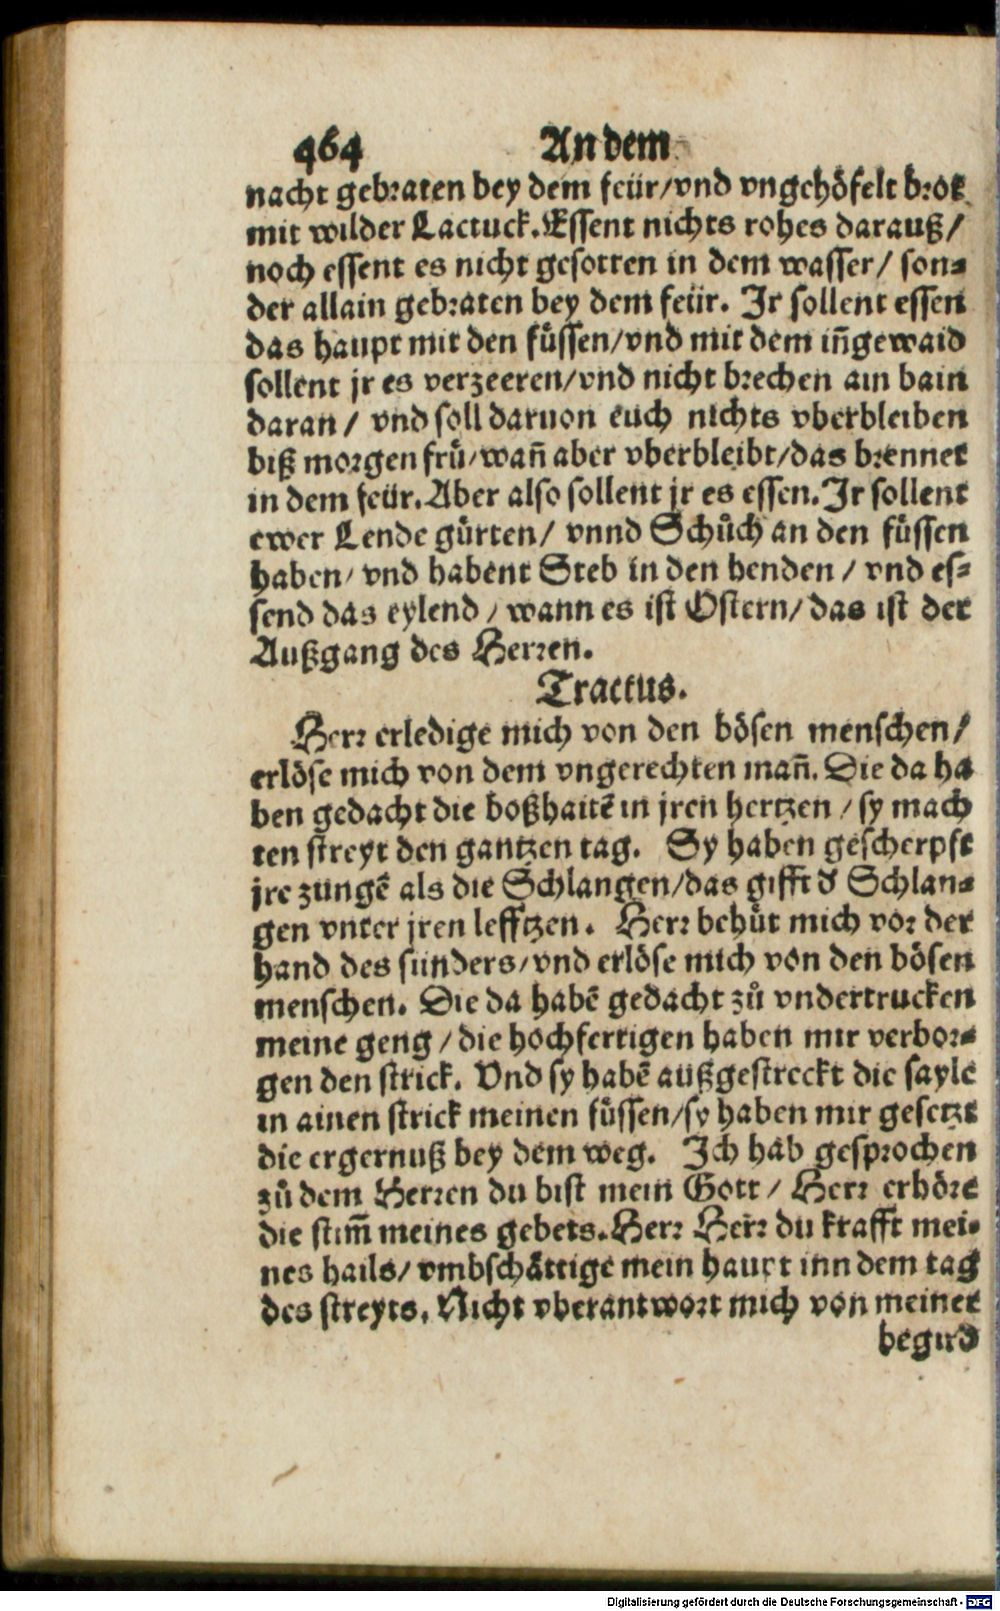 464 An dem
nacht gebraten bey dem feür/vnd vngehöfelt brot
mit wilder Lactuck. Essent nichts rohes darauß/
noch essent es nicht gesotten in dem wasser/ son=
der allain gebraten bey dem feür. Ir sollent essen
das haupt mit den füssen/vnd mit dem iñgewaid
sollent jr es verzeeren/vnd nicht brechen ain bain
daran/ vnd soll daruon euch nichts vberbleiben
biß morgen frü/wañ aber vberbleibt/das brennet
in dem feür. Aber also sollent jr es essen. Ir sollent
ewer Lende gürten/ vnnd Schůch an den füssen
haben/ vnd habent Steb in den henden/ vnd es=
send das eylend/ wann es ist Ostern/ das ist der
Außgang des Herren.
Tractus.
Herr erledige mich von den bösen menschen/
erlöse mich von dem vngerechten mañ. Die da ha
ben gedacht die boßhaitē in jren hertzen/ sy mach
ten streyt den gantzen tag. Sy haben gescherpft
jre zungē als die Schlangen/das gifft d' Schlan=
gen vnter jren lefftzen. Herr behüt mich vor der
hand des sünders/vnd erlöse mich von den bösen
menschen. Die da habē gedacht zů vndertrucken
meine geng/ die hochfertigen haben mir verbor=
gen den strick. Vnd sy habē außgestreckt die sayle
in ainen strick meinen füssen/sy haben mir gesetzt
die ergernuß bey dem weg. Ich hab gesprochen
zů dem Herren du bist mein Gott/ Herr erhöre
die stim̄ meines gebets. Herr Herr du krafft mei=
nes hails/ vmbschättige mein haupt inn dem tag
des streyts. Nicht vberantwort mich von meiner
begird
Digitalisierung gefördert durch die Deutsche Forschungsgemeinschaft - DFG